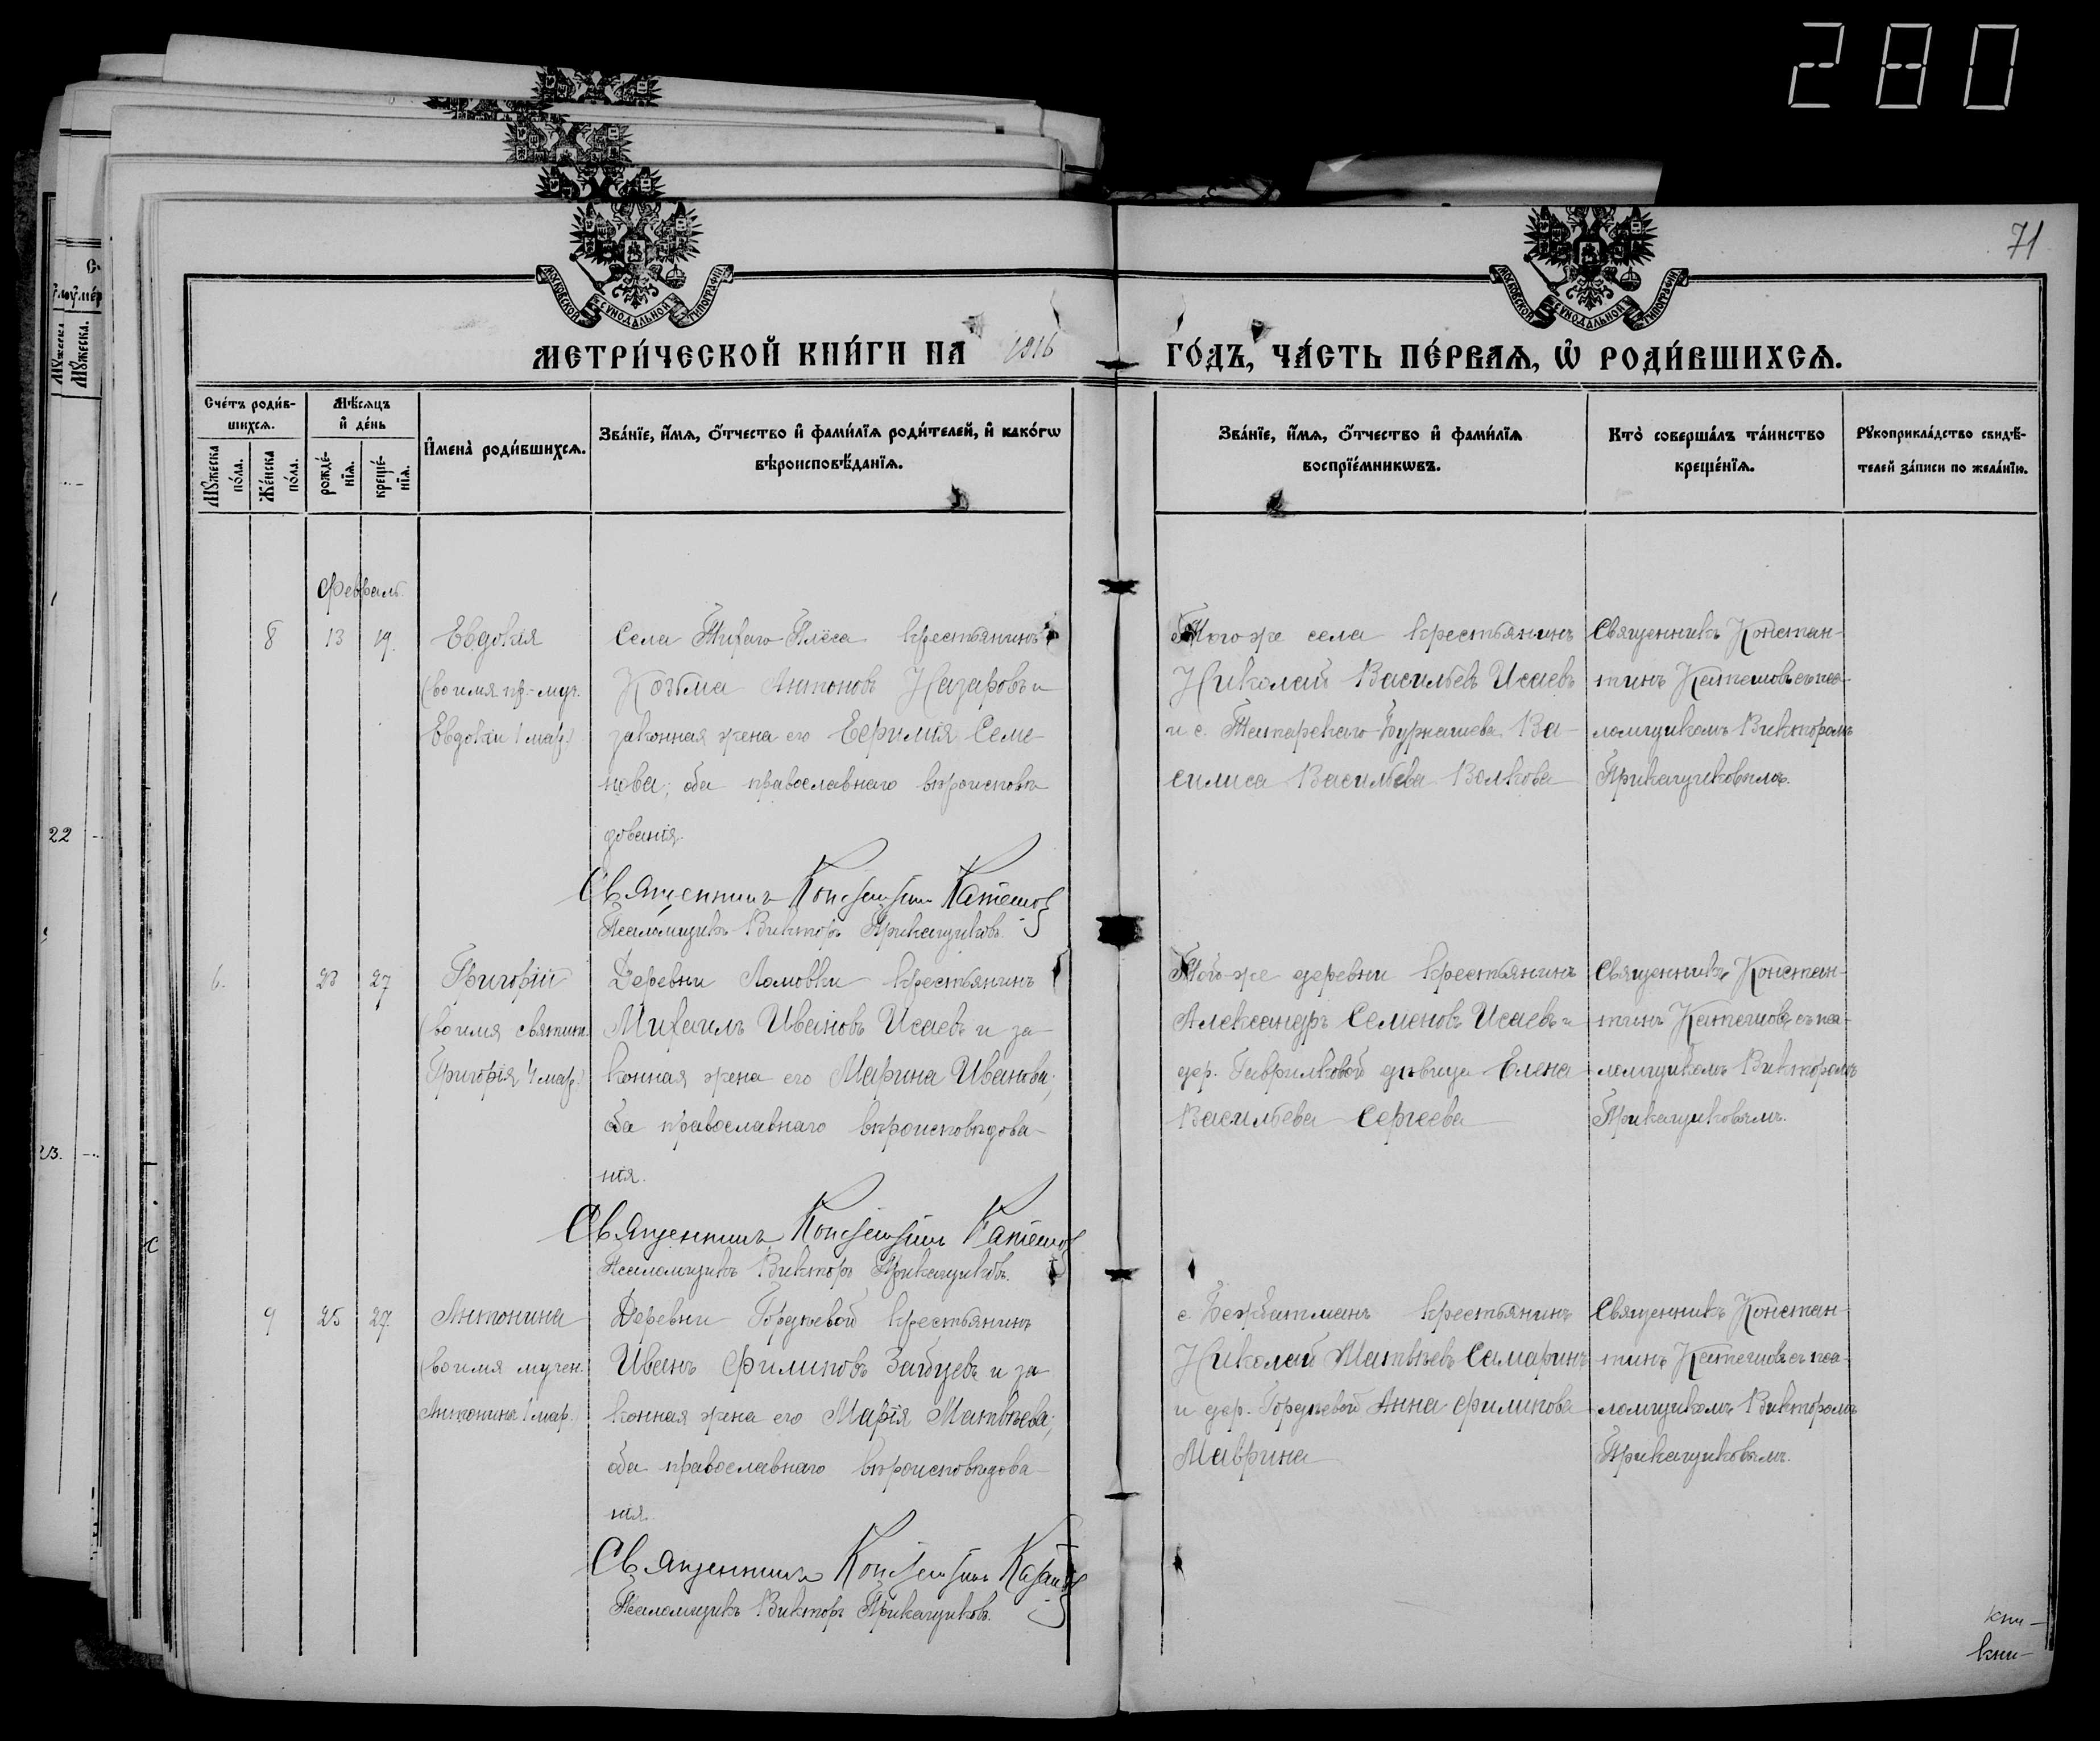 280
71
МОСКОВСКОЙ СѴНОДАЛЬНОЙ ТИПОГРАФІИ
МОСКОВСКОЙ СѴНОДАЛЬНОЙ ТИПОГРАФІИ
МЕТРИ́ЧЕСКОЙ КНИ́ГИ НА 1916 ГО́ДЪ, ЧА́СТЬ ПЕ́РВАѦ, Ѡ҆ РОДИ́ВШИХСѦ.
Сче́тъ роди́в-
шихсѧ.
Мѣ́сѧцъ
и҆ де́нь
Мꙋ́жеска
по́ла.
Же́нска
по́ла.
рожде́-
нїѧ.
креще́-
нїѧ.
И҆мена̀ роди́вшихсѧ.
Зва́нїе, и҆́мѧ, ѻ҆́тчество и҆ фами́лїѧ роди́телей, и҆ како́гѡ
вѣроисповѣ́данїѧ.
Зва́нїе, и҆́мѧ, ѻ҆́тчество и҆ фами́лїѧ
воспрїе́мникѡвъ.
Кто̀ соверша́лъ та́инство
креще́нїѧ.
Рꙋкоприкла́дство свидѣ́-
телей за́писи по жела́нїю.
Февраль.
8 13 19. Евдокія
(во имя пр.-муч.
Евдокіи 1 мар.)
Села Тихаго Плёса крестьянинъ
Козьма Антоновъ Назаровъ и
законная жена его Евфимія Семе-
нова; оба православнаго вѣроисповѣ
дованія.
Священникъ Константинъ Катешов
Псаломщикъ Викторъ Прикащиковъ.
Того-же села крестьянинъ
Николай Васильевъ Исаевъ
и с. Татарскаго-Бурнашева Ва-
силиса Васильева Волкова
Священникъ Констан-
тинъ Катешовъ съ пса-
ломщикомъ Викторомъ
Прикащиковымъ.
6. 23 27 Григорій
(во имя святит.
Григорія 4 мар.)
Деревни Ломовки крестьянинъ
Михаилъ Ивановъ Исаевъ и за-
конная жена его Марина Иванова;
оба православнаго вѣроисповѣдова-
нія.
Священникъ Константинъ Катешов
Псаломщикъ Викторъ Прикащиковъ.
Той-же деревни крестьянинъ
Александръ Семеновъ Исаевъ и
дер. Гавриловкой дѣвица Елена
Васильева Сергеева
Священникъ Констан-
тинъ Катешовъ съ пса-
ломщикомъ Викторомъ
Прикащиковымъ.
9 25 27 Антонина
(во имя мучен.
Антонины 1 мар.)
Деревни Гордѣевой крестьянинъ
Иванъ Филиповъ и за
конная жена его Марія Матвѣева;
оба православнаго вѣроисповѣдова-
нія.
Священникъ Константинъ
Псаломщикъ Викторъ Прикащиковъ.
с. Бежбатманъ крестьянинъ
Николай Матвѣевъ Самаринъ
и дер. Гордѣевой Анна Филипова
Маврина
Священникъ Констан-
тинъ Катешовъ съ пса-
ломщикомъ Викторомъ
Прикащиковымъ.
кни-
кни-
22
23.